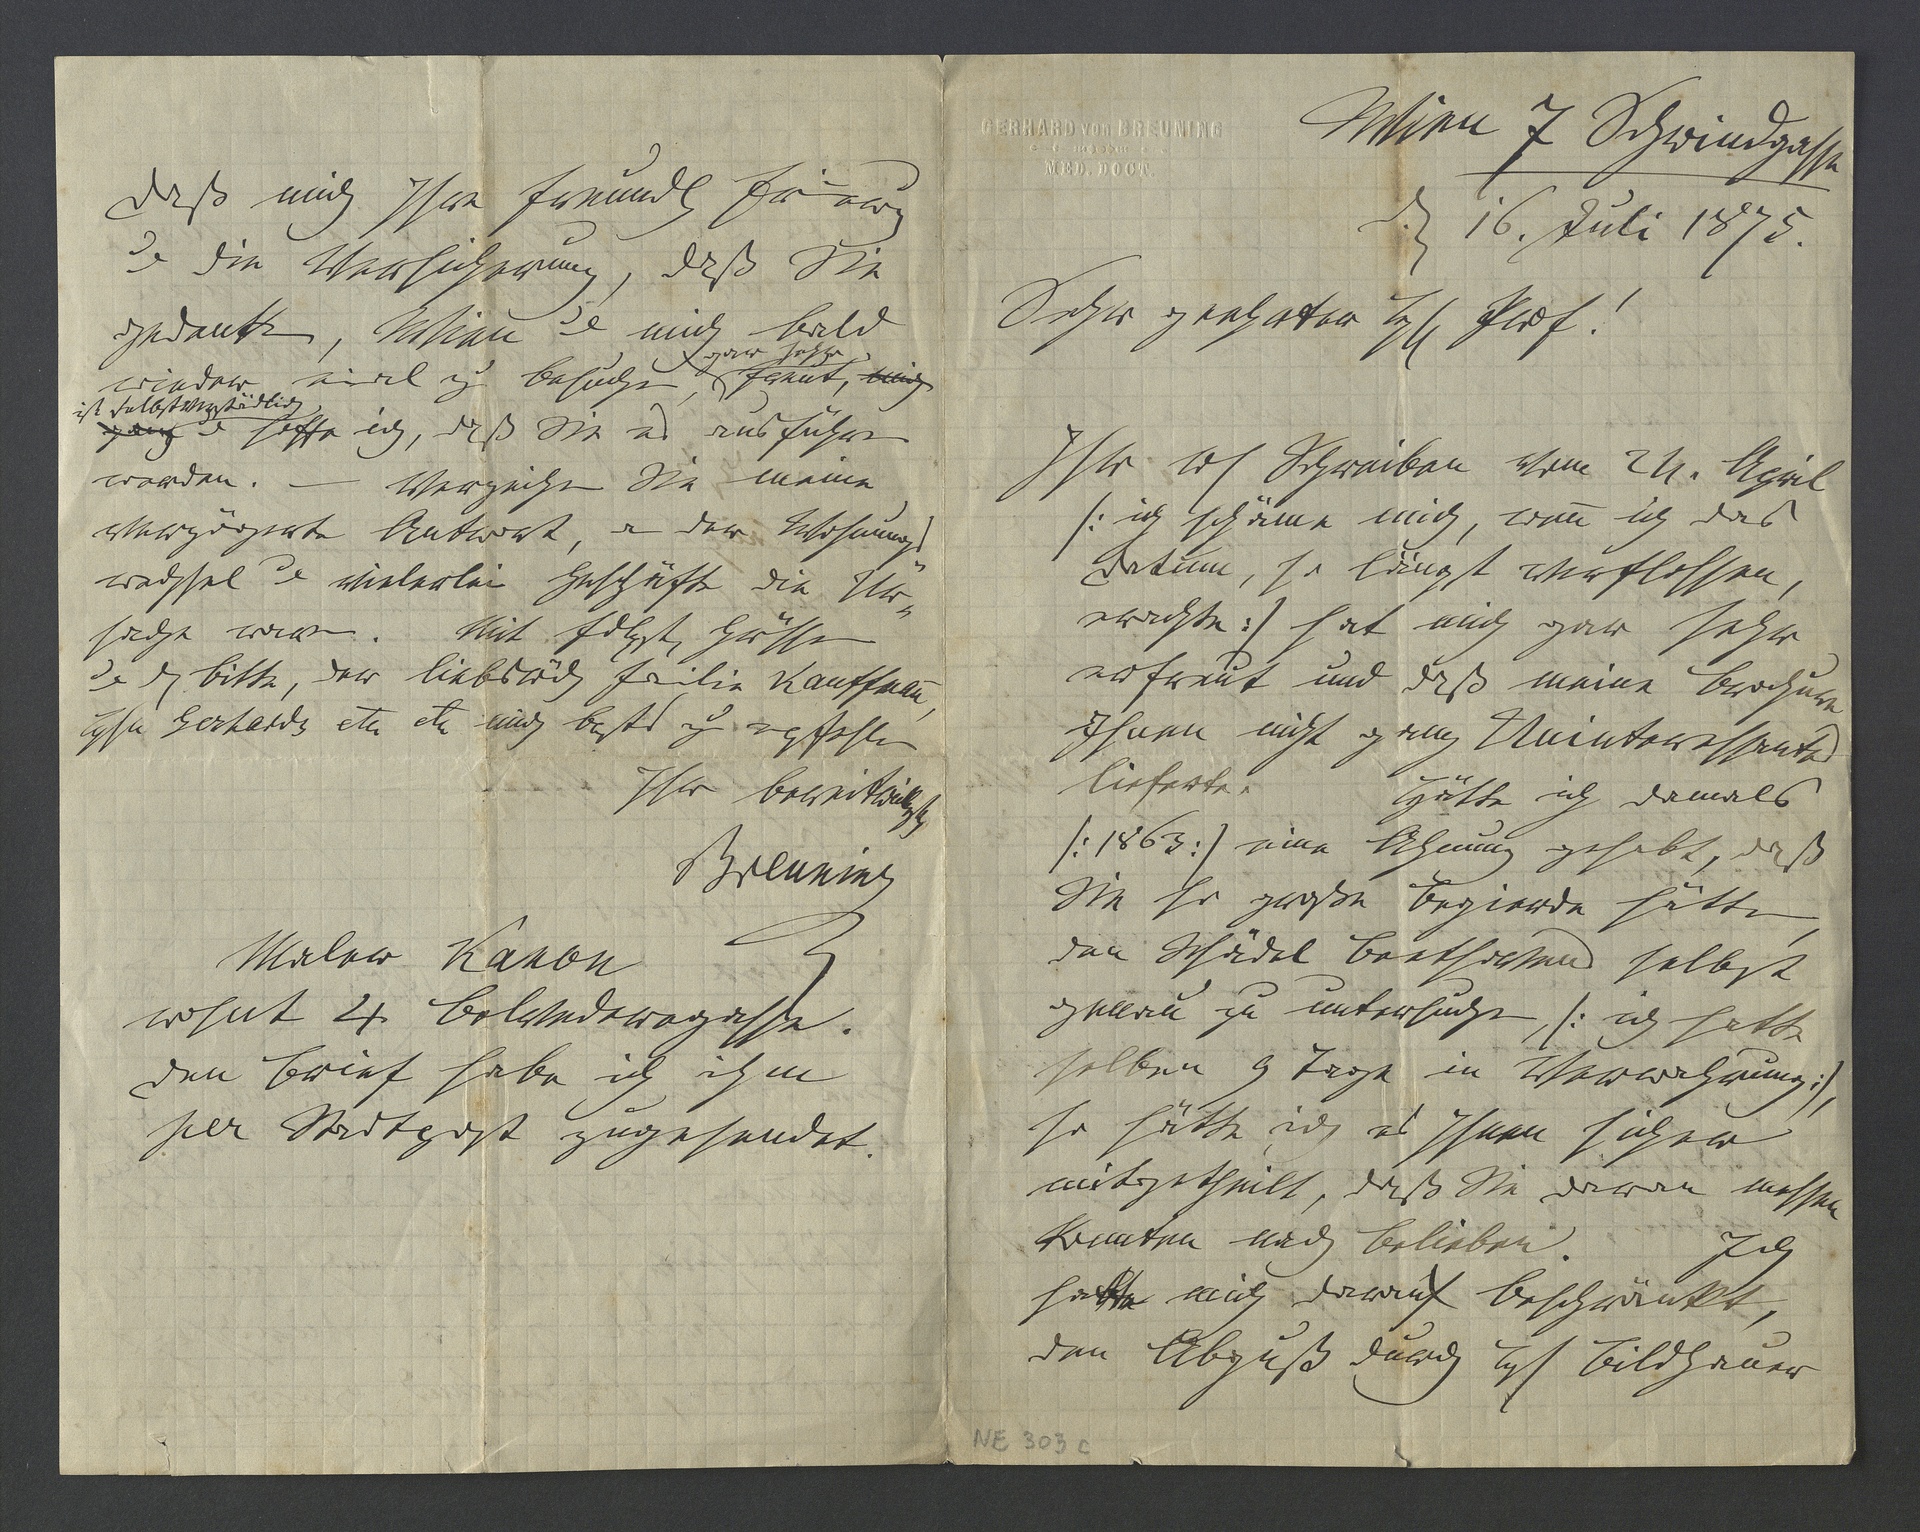 GERHARD von BREUNING
MED. DOCT.
Wien 7 Schwindgasse
16. Juli 1875.
Sehr geehrter H Prof.!
Ihr Schreiben vom 24. April
/: ich schäme mich, wenn ich das
Datum, so längst verflossen,
erachte:/ hat mich gar sehr
erfreut und daß meine Brochure
Ihnen nicht ganz Uninteressantes
lieferte. Hätte ich damals
/:1863:/ eine Ahnung gehabt, daß
Sie so große Begierde hätten
den Schädel Beethovens selbst
genau zu untersuchen, /: ich hatte
selben 9 Tage in Verwahrung:/,
so hätte ich es Ihnen sicher
mitgetheilt, daß Sie daran messen
konnten nach Belieben. Ich
hatte mich darauf beschränkt,
den Abguß durch H Bildhauer
daß mich Ihre freundl
u die Versicherung, daß Sie
gedenken, Wien u mich bald
wieder einmal zu besuchen, gar sehr freut, mich
ist selbstverständlich
ganz u hoffe ich, daß Sie es ausführen
werden. — Verzeihen Sie meine
verzögerte Antwort, an der Wohnungs
wechsel u vielerlei Geschäfte die Ur„
sache waren. Mit Grüssen
u d bitte, der Familie Kauffmann,
Gerhards etc etc mich bestens zu empfehlen
Ihr bereitwilligster
Breuning
Maler Kanon
wohnt 4 Belvederegasse.
den Brief habe ich ihm
per Stadtpost zugesendet.
NE 303 c